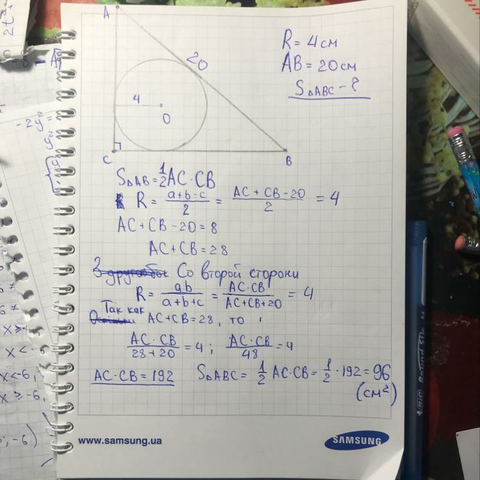 A
20
4
O
C
B
R = 4 см
AB = 20 см
S△ABC - ?
S△AB = 1/2 AC · CB
R = (a+b-c)/2 = (AC + CB - 20)/2 = 4
AC + CB - 20 = 8
AC + CB = 28
Со второй стороны
R = ab/(a+b+c) = AC · CB/(AC+CB+20) = 4
Так как AC + CB = 28, то
AC · CB/(28+20) = 4 ; AC · CB/48 = 4
AC · CB = 192 S△ABC = 1/2 AC · CB = 1/2 · 192 = 96
(см²)
www.samsung.ua
SAMSUNG